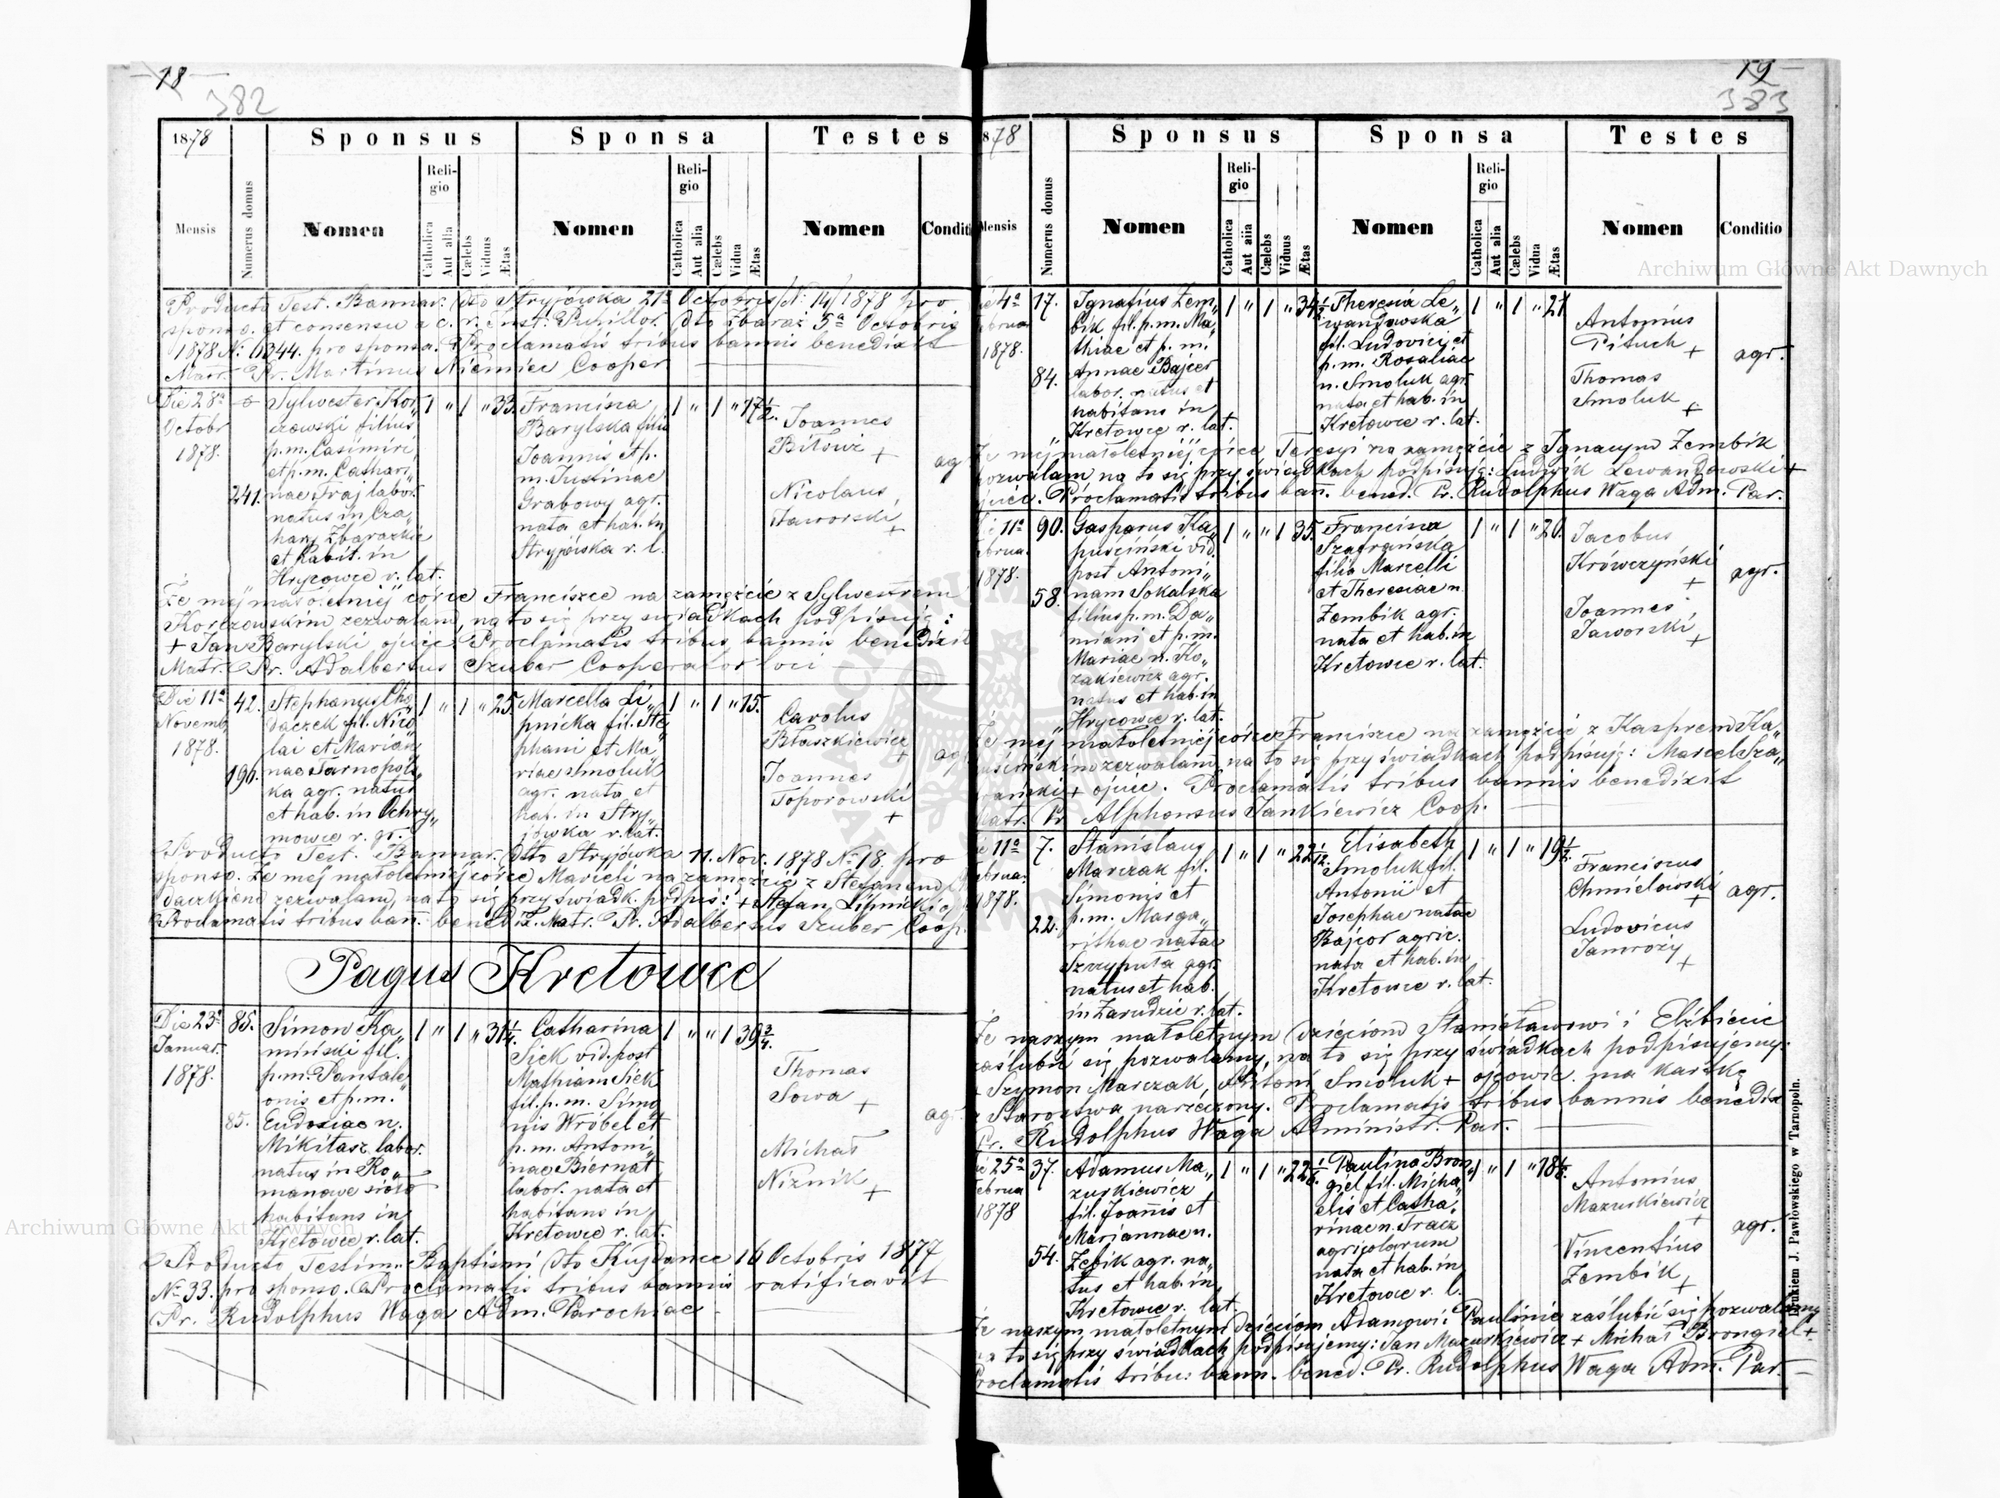 18
382
1878
Sponsus
Sponsa
Testes
Mensis
Numerus domus
Nomen
Religio
Catholica
Aut alia
Cælebs
Viduus
Ætas
Nomen
Religio
Catholica
Aut alia
Cælebs
Vidua
Ætas
Nomen
Conditi
Producto Test. Bannar. dto Stryjówka 21a Octobris N. 14/1878 pro
sponso. et consensu a c. r. Inst. Pupillor. dto Zbaraż 5a Octobris
1878 N. 6344. pro sponsa. Proclamatis tribus bannis benedixit
Matr. Pr. Martinus Niemiec Cooper
Die 28a
Octobr
1878.
241.
Sylwester Kor„
czowski filius
p.m. Casimiri
et p.m. Cathari„
nae Traj labor.
natus in Cza„
hary Zbarazkie
et habit. in
Hrycowce r. lat.
1 „ 1 „ 33.
Francisca
Barylska filia
Joannis et p.
m. Justinae
Grabowy agr.
nata et hab. in
Stryjówska r. l.
1 „ 1 „ 17 1/2.
Joannes
Bitowi +
Nicolaus
Jaworski +
ag
Że mej małoletniej córce Franciszce na zamęźcie z Sylwestrem
Korczowskim zezwalam, na to się przy swiadkach podpisuję:
+ Jan Barylski ojciec. Proclamatis tribus bannis benedixit
Matr. Pr. Adalbertus Szuber Cooperator loci
Die 11a
Novemb.
1878.
42.
196.
Stephanus Cho„
daczek fil. Nico„
lai et Marian„
nae Tarnopols„
ka agr. natus
et hab. in Ochry„
mowce r. gr.
1 „ 1 „ 25.
Marcella Li„
pnicka fil. Ste„
phani et Ma„
riae Smoluk
agr. nata et
hab. in Stry„
jówka r. lat.
1 „ 1 „ 15.
Carolus
Błaszkiewicz +
Joannes
Toporowski +
ag
Producto Test. Bannar. dto Stryjówka 11. Nov. 1878 N. 18. pro
sponso. Że mej małoletniej córce Marceli na zamęźcie z Stefanem
daczkiem zezwalam, na to się przy świadk. podpis: + Stefan Lipnicki
Proclamatis tribus ban. bened. Matr. Pr. Adalbertus Szuber Coop.
Pagus Kretowce
Die 23a
Januar.
1878.
85.
85.
Simon Ka„
miński fil.
p.m. Pantale„
onis et p.m.
Eudosiae n.
Mikitasz labor.
natus in Ro„
manowe sioło
habitans in
Kretowce r. lat.
1 „ 1 „ 31 1/4.
Catharina
Siek vid. post
Mathiam Siek
fil. p.m. Simo
nis Wróbel et
p.m. Antoni„
nae Biernat
labor. nata et
habitans in
Kretowce r. lat.
1 „ „ 1 39 3/4.
Thomas
Sowa +
Michał
Niznik +
ag
Producto Testim. Baptismi dto Kujdance 16 Octobris 1877
N. 33. pro sponso. Proclamatis tribus bannis ratificavit
Pr. Rudolphus Waga Adm. Parochiae
19
383
878
Sponsus
Sponsa
Testes
Mensis
Numerus domus
Nomen
Religio
Catholica
Aut alia
Cælebs
Viduus
Ætas
Nomen
Religio
Catholica
Aut alia
Cælebs
Vidua
Ætas
Nomen
Conditio
ie 4a
ebruar
1878.
17.
84.
Ignatius Zem„
bik fil. p.m. Ma„
thiae et p.m.
Annae Bajcer
labor. natus et
habitans in
Kretowce r. lat.
1 „ 1 „ 34 1/2
Theresia Le„
wandowska
fil. Ludovici et
p.m. Rosaliae
n. Smoluk agr.
nata et hab. in
Kretowce r. lat.
1 „ 1 „ 21
Antonius
Pituch +
Thomas
Smoluk +
agr.
Że mej małoletniej córce Teresyi na zamęźcie z Ignacym Zembik
pozwalam na to się przy świadkach podpisuję: Ludwik Lewandowski +
ojciec. Proclamatis tribus ban. bened. Pr. Rudolphus Waga Adm. Par.
ie 11a
ebrua.
1878.
90.
58.
Gasparus Ka„
puściński vid.
post Antoni„
nam Sokalska
filius p.m. Da„
miani et p.m.
Mariae n. Ko„
zakiewicz agr.
natus et hab. in
Hrycowce r. lat.
1 „ „ 1 35.
Francisca
Szafrańska
filia Marcelli
et Theresiae n.
Zembik agr.
nata et hab. in
Kretowce r. lat.
1 „ 1 „ 20.
Jacobus
Krówczyński +
Joannes
Jaworski +
agr.
Że mej małoletniej córce Franciszce na zamęźcie z Kasprem Ka„
puścińskim zezwalam na to się przy świadkach podpisuję: Marcel Sza„
frański + ojciec. Proclamatis tribus bannis benedixit
Matr. Pr. Alphonsus Jankiewicz Coop.
ie 11a
ebrua.
1878.
7.
22.
Stanislaus
Marczak fil.
Simonis et
p.m. Marga„
rithae natae
Szczyputa agr.
natus et hab.
in Zarudzie r. lat.
1 „ 1 „ 22 1/12.
Elisabeth
Smoluk fil.
Antonii et
Josephae natae
Bajcor agric.
nata et hab. in
Kretowce r. lat.
1 „ 1 „ 19 1/2.
Franciscus
Chmielowski +
Ludovicus
Jamroży +
agr.
Że naszym małoletnym dzieciom Stanisławowi i Elżbiecie
zaślubić się pozwalamy, na to się przy świadkach podpisujemy:
+ Szymon Marczak, Antoni Smoluk + ojcowie. ma kartkę
z Starostwa narzeczony. Proclamatis tribus bannis benedix
Pr. Rudolphus Waga Administr. Par.
ie 25a
ebrua
1878
37.
54.
Adamus Ma„
zurkiewicz
fil. Joannis et
Mariannae n.
Zebik agr. na„
tus et hab. in
Kretowce r. lat.
1 „ 1 „ 22
Paulina Bron„
giel fil. Micha„
elis et Catha„
rinae n. Tracz
agricolarum
nata et hab. in
Kretowce r. l.
1 „ 1 „ 18
Antonius
Mazurkiewicz +
Vincentius
Zembik +
agr.
Że naszym małoletnym dzieciom Adamowi i Paulinie zaślubić się pozwalamy
na to się przy świadkach podpisujemy: Jan Mazurkiewicz + Michał Brongiel +
Proclamatis tribu: bann. bened. Pr. Rudolphus Waga Adm. Par.
Drukiem J. Pawłowskiego w Tarnopolu.
Archiwum Główne Akt Dawnych
Archiwum Główne Akt Dawnych